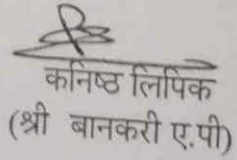 कनिष्ठ लिपिक
(श्री बानकरी ए.पी)